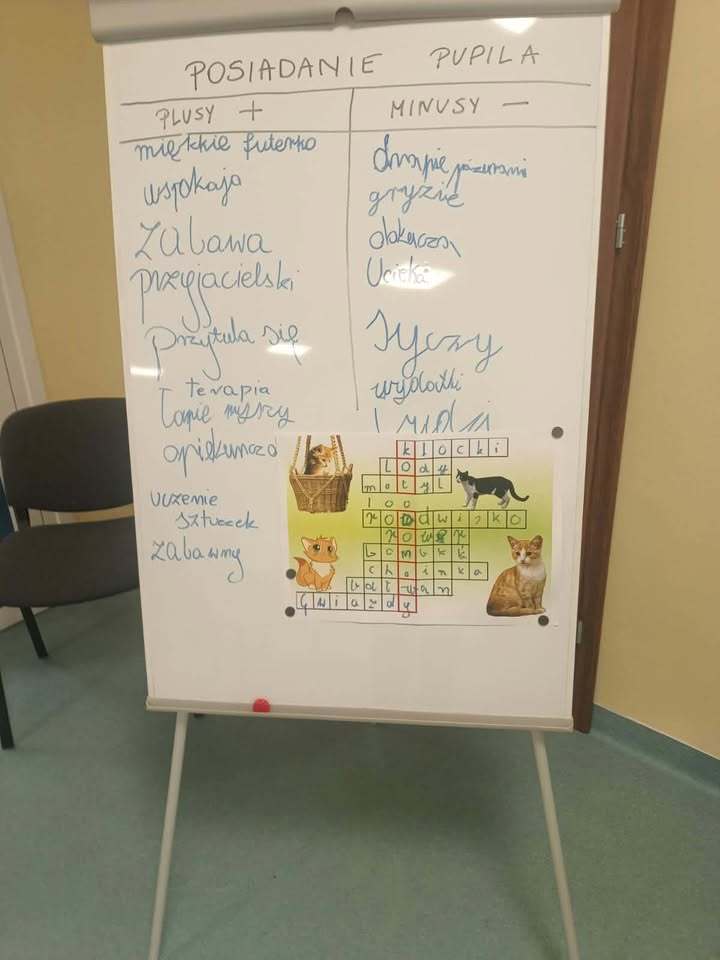 POSIADANIE PUPILA
PLUSY +
miękkie futerko
uspokaja
Zabawa
przyjacielski
przytula się
terapia
Łapie myszy
uczenie
sztuczek
zabawny
MINUSY -
drapie pazurami
gryzie
Ucieka
Syczy
wydatki
klocki
Lody
motyl
loo
rowerk
choinka
bałwan
Gwiazdy